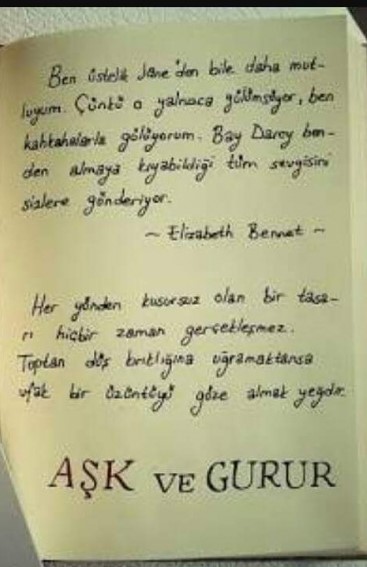 Ben üstelik Jane'den bile daha mut-
luyum. Çünkü o yalnızca gülümsüyor, ben
kahkahalarla gülüyorum. Bay Darcy ben-
den almaya kıyabildiği tüm sevgisini
sizlere gönderiyor.
~ Elizabeth Bennet ~
Her yönden kusursuz olan bir tasa-
rı hiçbir zaman gerçekleşmez.
Toptan düş kırıklığına uğramaktansa
ufak bir üzüntüyü göze almak yeğdir.
AŞK VE GURUR